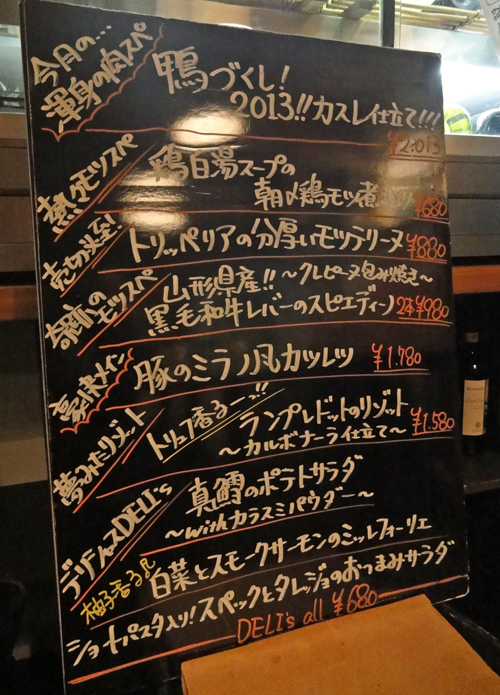 今月の…
渾身の肉スペ
鴨づくし!
2013!!カスレ仕立て!!!
¥2.013
熱々モツスペ
鶏白湯スープの
朝〆鶏モツ煮
¥680
売切必至!
トリッペリアの分厚いモツテリーヌ ¥880
奇跡のモツスペ
山形県産!!〜クレピーヌ包み焼き〜
黒毛和牛レバーのスピエディーノ 2本¥980
豪快メイン
豚のミラノ風カツレツ ¥1.780
夢みたリゾット
トリュフ香るーっ!!
ランプレドットのリゾット ¥1.580
〜カルボナーラ仕立て〜
デリシャスDELI's
真鱈のポテトサラダ
〜withカラスミパウダー〜
柚子香る♪
白菜とスモークサーモンのミッレフォーリエ
ショートパスタ入り!スペックとタレッジョのおつまみサラダ
DELI's all ¥680